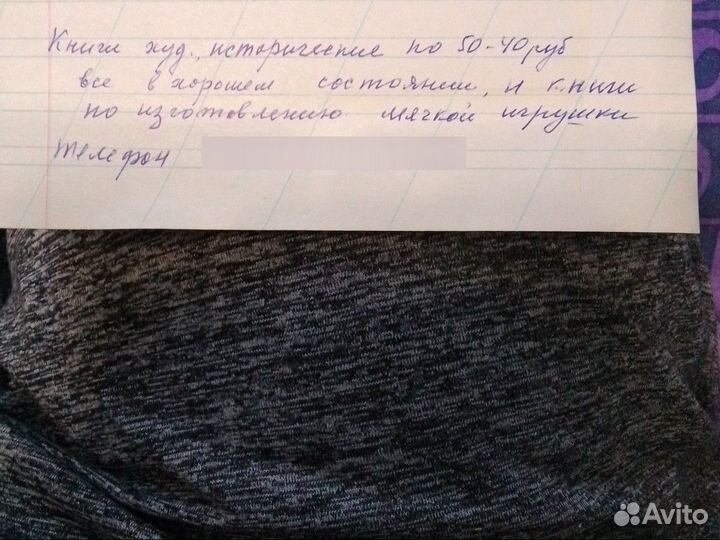 Книги худ., исторические по 50-40 руб
все в хорошем состоянии, и книги
по изготовлению мягкой игрушки
телефон
Avito